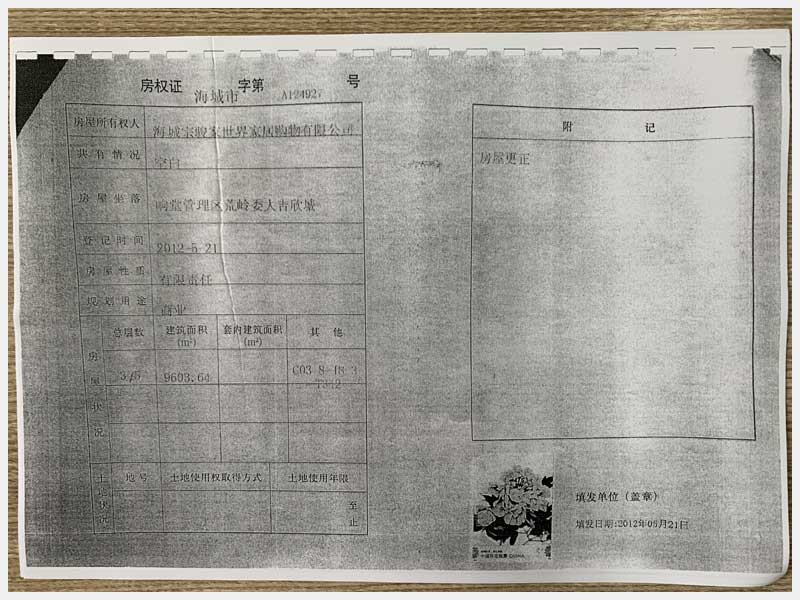 房权证 海城市 字第 A124927 号
房屋所有权人 海城宗骏家世界家居购物有限公司
共有情况 空白
房屋坐落 响堂管理区荒岭委人吉欣城
登记时间 2012-5-21
房屋性质 有限责任
规划用途 商业
房屋状况 总层数 建筑面积(m²) 套内建筑面积(m²) 其他
3/5 9603.64 C03-8-18-3
土地状况 地号 土地使用权取得方式 土地使用年限
至
止
附记
房屋更正
填发单位（盖章）
填发日期:2012年05月21日